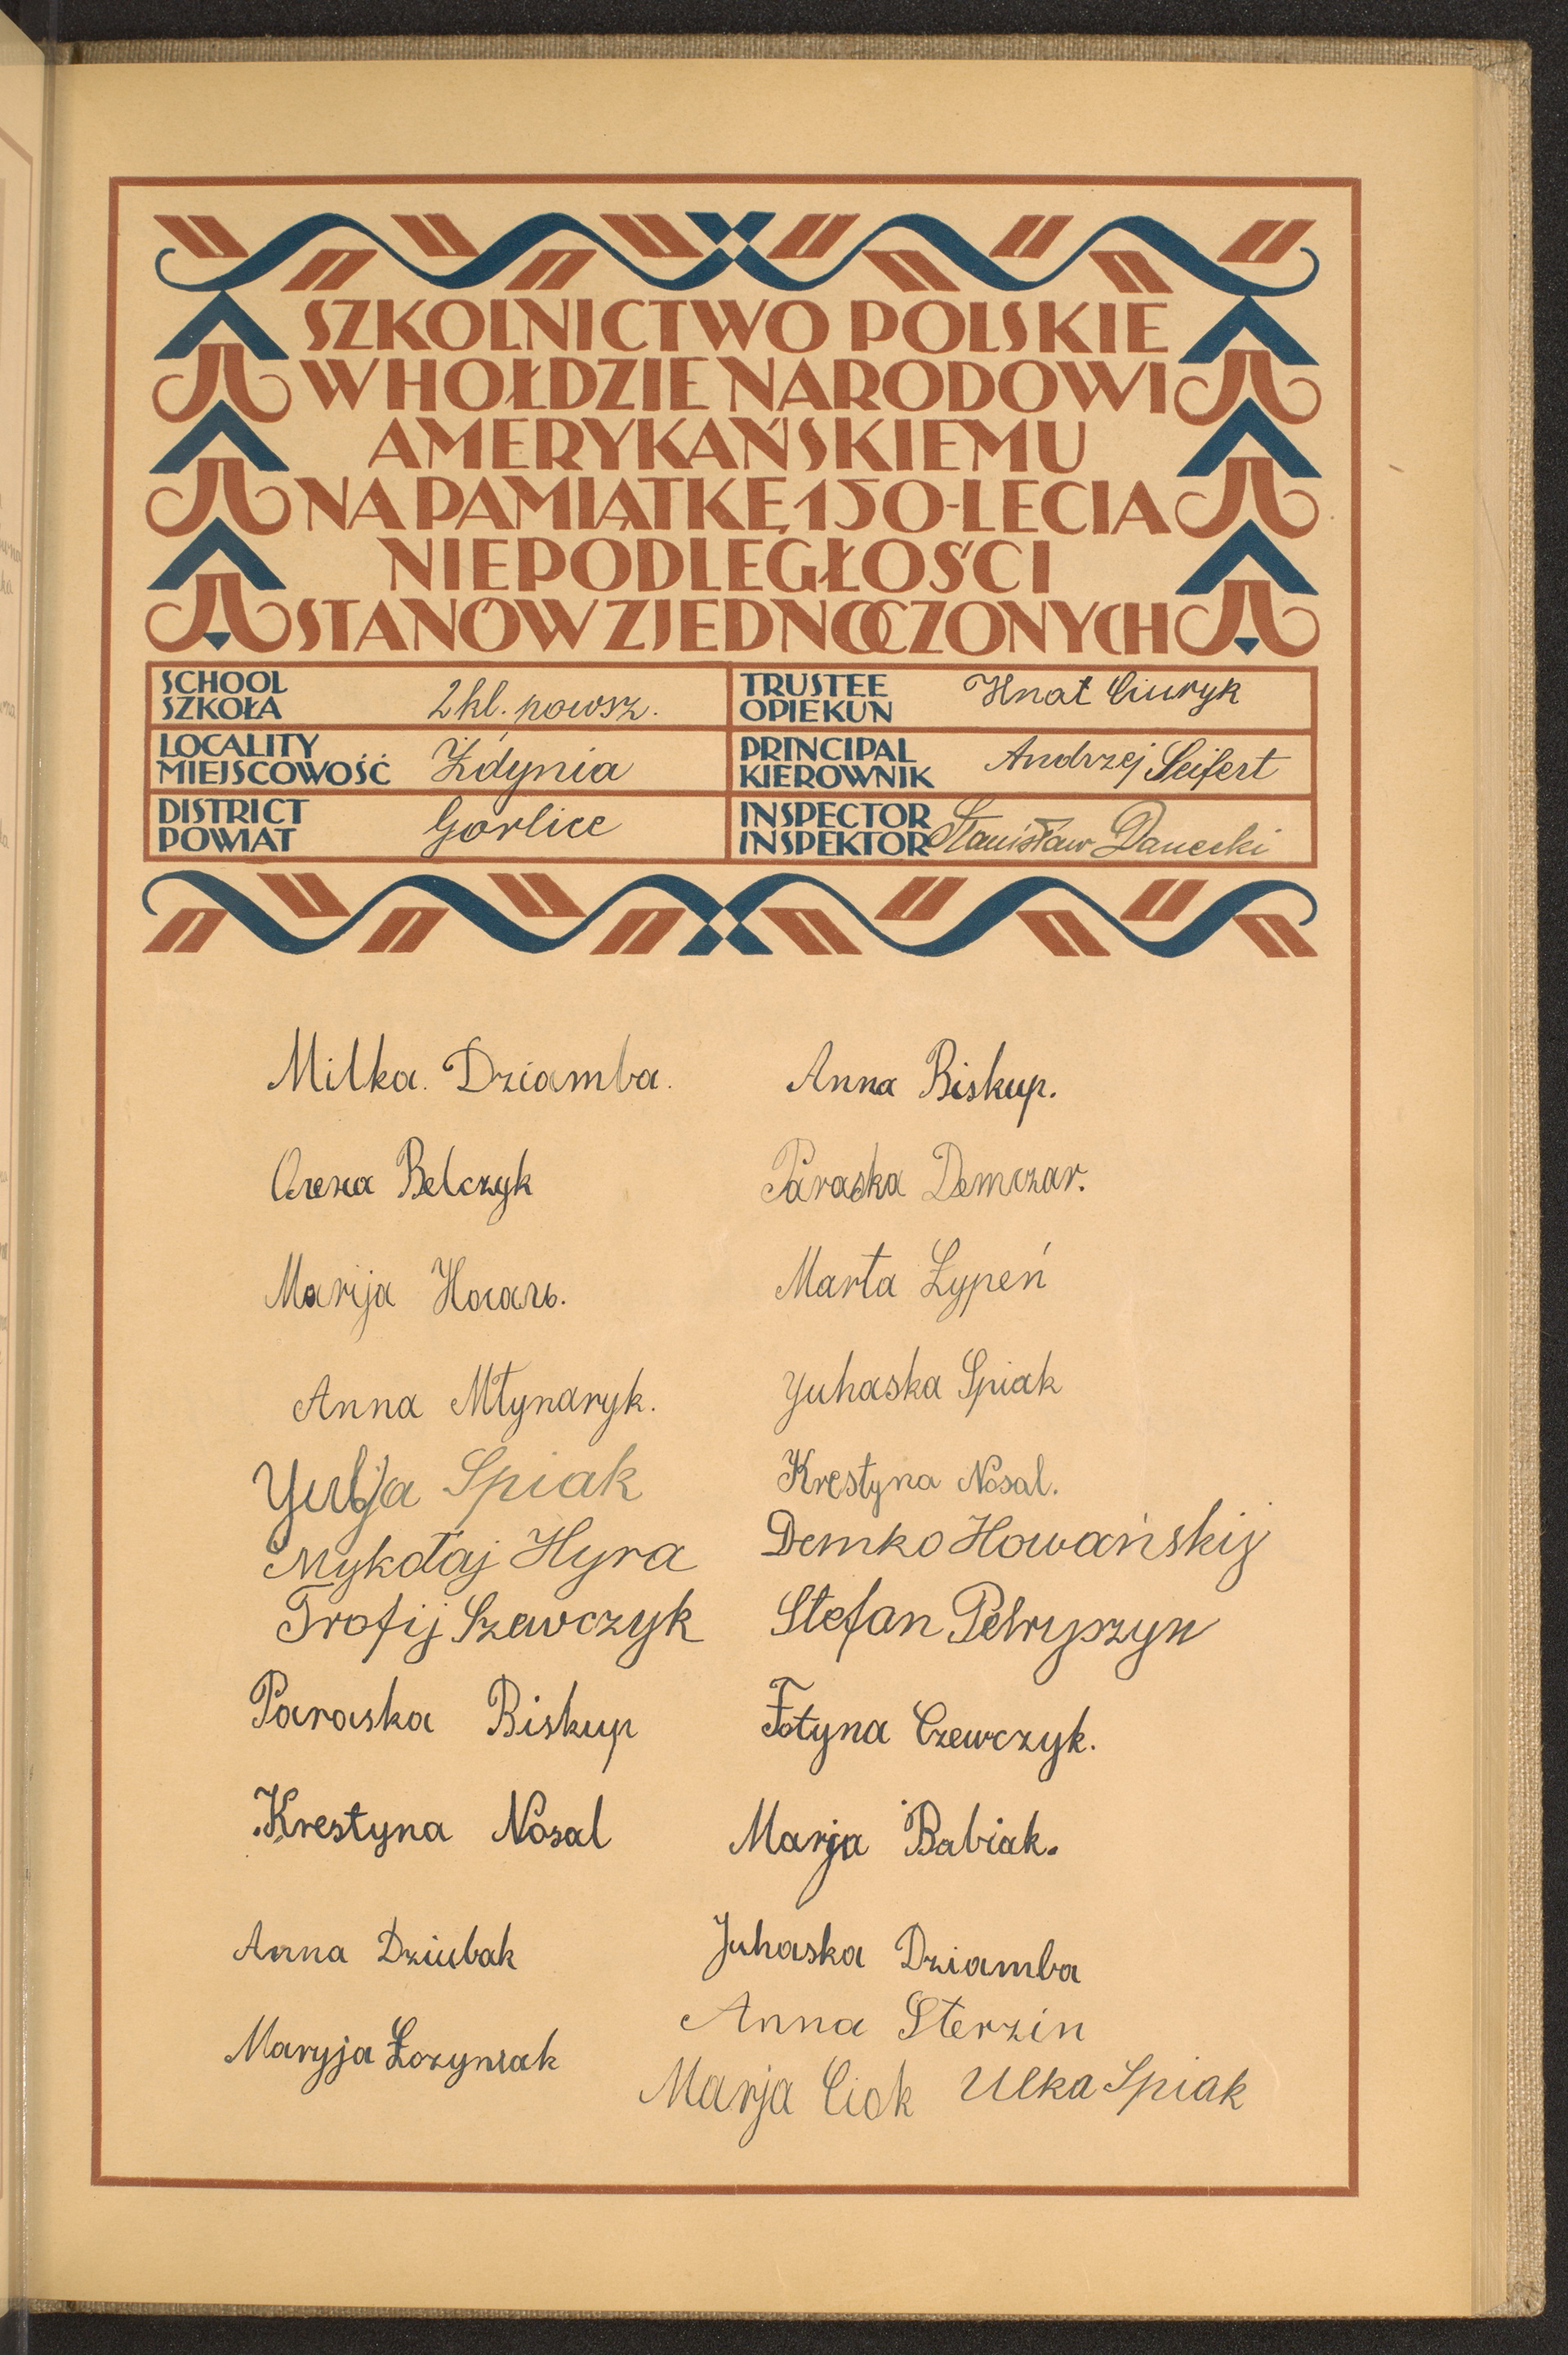 SZKOLNICTWO POLSKIE
W HOŁDZIE NARODOWI
AMERYKAŃSKIEMU
NA PAMIĄTKĘ 150-LECIA
NIEPODLEGŁOŚCI
STANÓW ZJEDNOCZONYCH
SCHOOL
SZKOŁA
2 kl. powsz.
TRUSTEE
OPIEKUN
Hnat Ciuryk
LOCALITY
MIEJSCOWOŚĆ
Żdynia
PRINCIPAL
KIEROWNIK
Andrzej Seifert
DISTRICT
POWIAT
Gorlice
INSPECTOR
INSPEKTOR
Stanisław Danecki
Milka. Dziamba.
Anna Biskup.
Олена Belczyk
Paraska Demczar.
Marija Носаль.
Marta Łypeń
Anna Młynaryk.
Yuhaska Spiak
Spiak
Krestyna Nosal.
Mykołaj Hyra
Demko Howańskij
Trofij Szewczyk
Stefan Petryszyn
Paraska Biskup
Fotyna Czewczyk.
Krestyna Nosal
Marja Babiak.
Anna Dziubak
Juhaska Dziamba
Anna Sterzin
Maryja Łozyniak
Marja Ciok Ulka Spiak